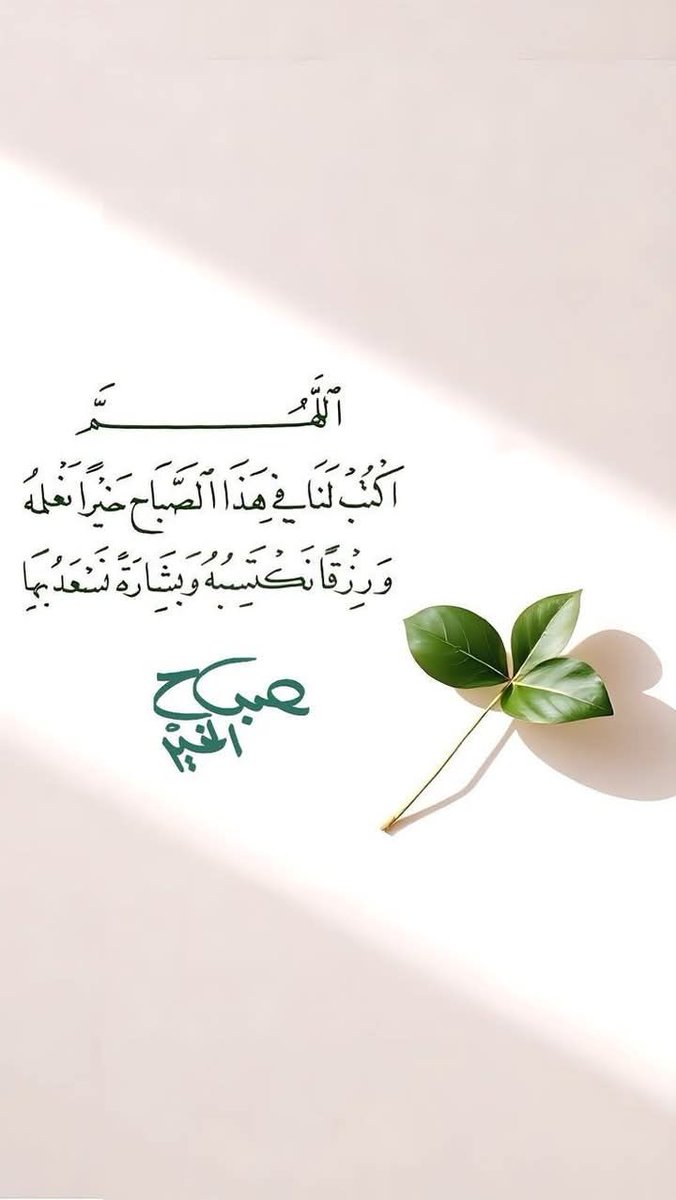 ٱللَّهُمَّ
اكْتُبْ لَنَا فِي هَذَا ٱلصَّبَاحِ خَيْرًا نَعْلمهُ
وَرِزْقًا نَكْتَسِبُهُ وَبَشَارَةً نَسْعَدُ بِهَا
صباح
الخير